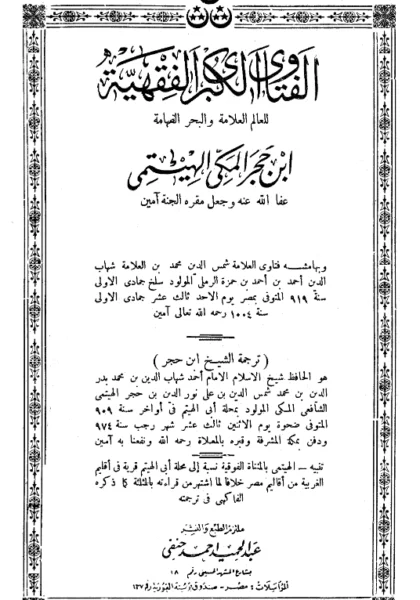 الفتاوى الكبرى الفقهية
للعالم العلامة والبحر الفهامة
ابن حجر المكي الهيتمى
عفا الله عنه وجعل مقره الجنة آمين
وبهامشه فتاوى العلامة شمس الدين محمد بن العلامة شهاب
الدين أحمد بن أحمد بن حمزة الرملى المولود سلخ جمادى الاولى
سنة ٩١٩ المتوفى بمصر يوم الاحد ثالث عشر جمادى الاولى
سنة ١٠٠٤ رحمه الله تعالى آمين
( ترجمة الشيخ ابن حجر )
هو الحافظ شيخ الاسلام الامام أحمد شهاب الدين بن محمد بدر
الدين بن محمد شمس الدين بن على نور الدين بن حجر الهيتمى
الشافعى المكى المولود بمحلة أبى الهيتم فى أواخر سنة ٩٠٩
المتوفى ضحوة يوم الاثنين ثالث عشر شهر رجب سنة ٩٧٤
ودفن بمكة المشرفة وقبره بالمعلاة رحمه الله ونفعنا به آمين
تنبيه — الهيتمى بالمثناة الفوقية نسبة إلى محلة أبى الهيتم قرية فى أقاليم
الغربية من أقاليم مصر خلافا لما اشتهر من قراءته بالمثلثة كما ذكره
الفاكهى فى ترجمته
ملتزم الطبع والنشر
عبد الحميد أحمد حنفى
بشارع المشهد الحسينى رقم ١٨
المراسلات : مصر - صندوق بوستة الغورية رقم ١٣٧